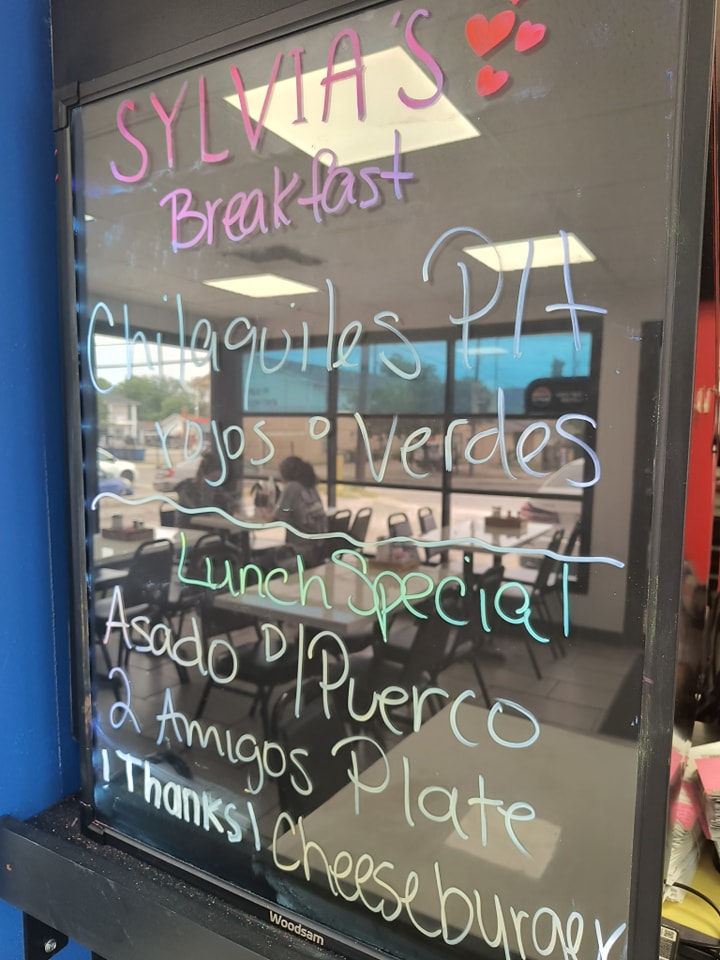 SYLVIA'S
Breakfast
Chilaquiles P/I
rojos o Verdes
Lunch Special
Asado D/Puerco
2 Amigos Plate
¡Thanks! Cheeseburger
Woodsam